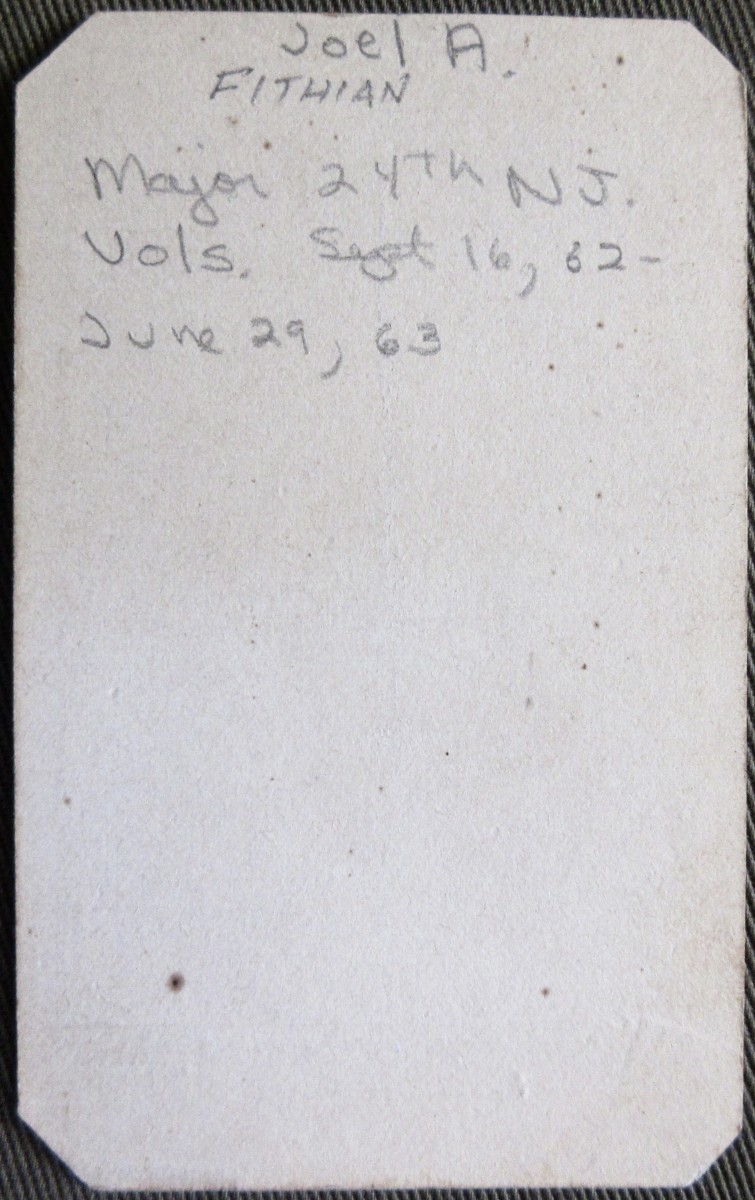 Joel A.
FITHIAN
Major 24th NJ.
Vols. Sept 16, 62-
June 29, 63